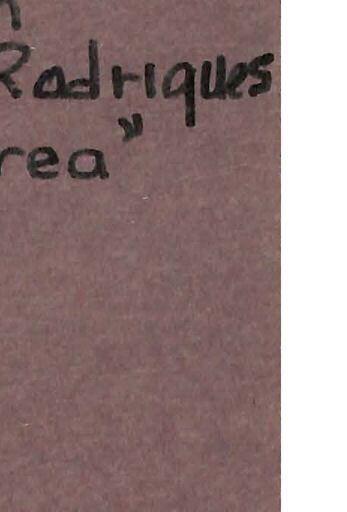 Rodriques
rea"